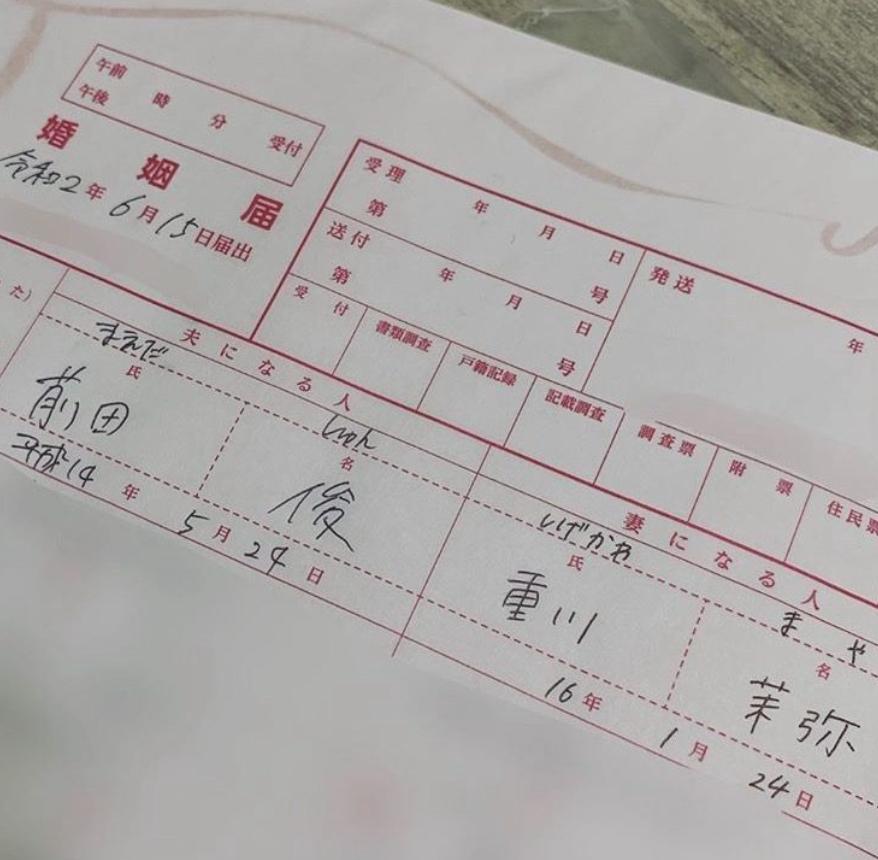 午前
午後 時 分 受付
婚姻届
令和2年6月15日届出
受理 年 月 日
第 号
送付 年 月 日
第 号
発送 年
受付 書類調査 戸籍記録 記載調査 調査票 附票 住民票
た）
夫になる人
まえだ しゅん
氏 名
前田 俊
平成14年5月24日
妻になる人
しげかわ まや
氏 名
重川 茉弥
16年1月24日